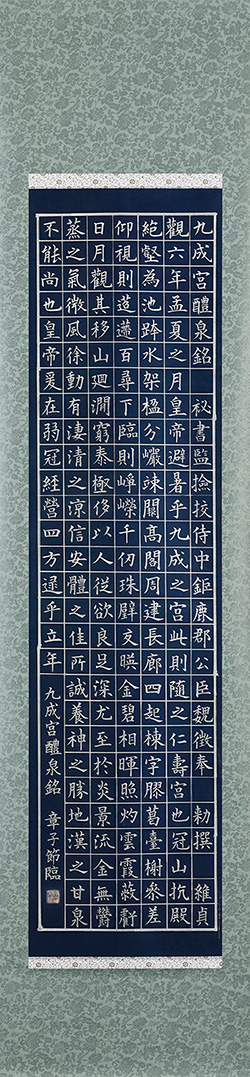 九成宮醴泉銘 秘書監撿挍侍中鉅鹿郡公臣魏徵奉 勅撰 維貞
觀六年孟夏之月皇帝避暑乎九成之宮此則隨之仁壽宮也冠山抗殿
絶壑為池跨水架楹分巖竦闕髙閣周建長廊四起棟宇膠葛臺榭參差
仰視則迢遰百尋下臨則崢嶸千仞珠壁交暎金碧相暉照灼雲霞蔽虧
日月觀其移山廻澗窮泰極侈以人從欲良足深尤至於炎景流金無欝
蒸之氣微風徐動有淒清之涼信安體之佳所誠養神之勝地漢之甘泉
不能尚也皇帝爰在弱冠經營四方逮乎立年 九成宮醴泉銘 章子節臨